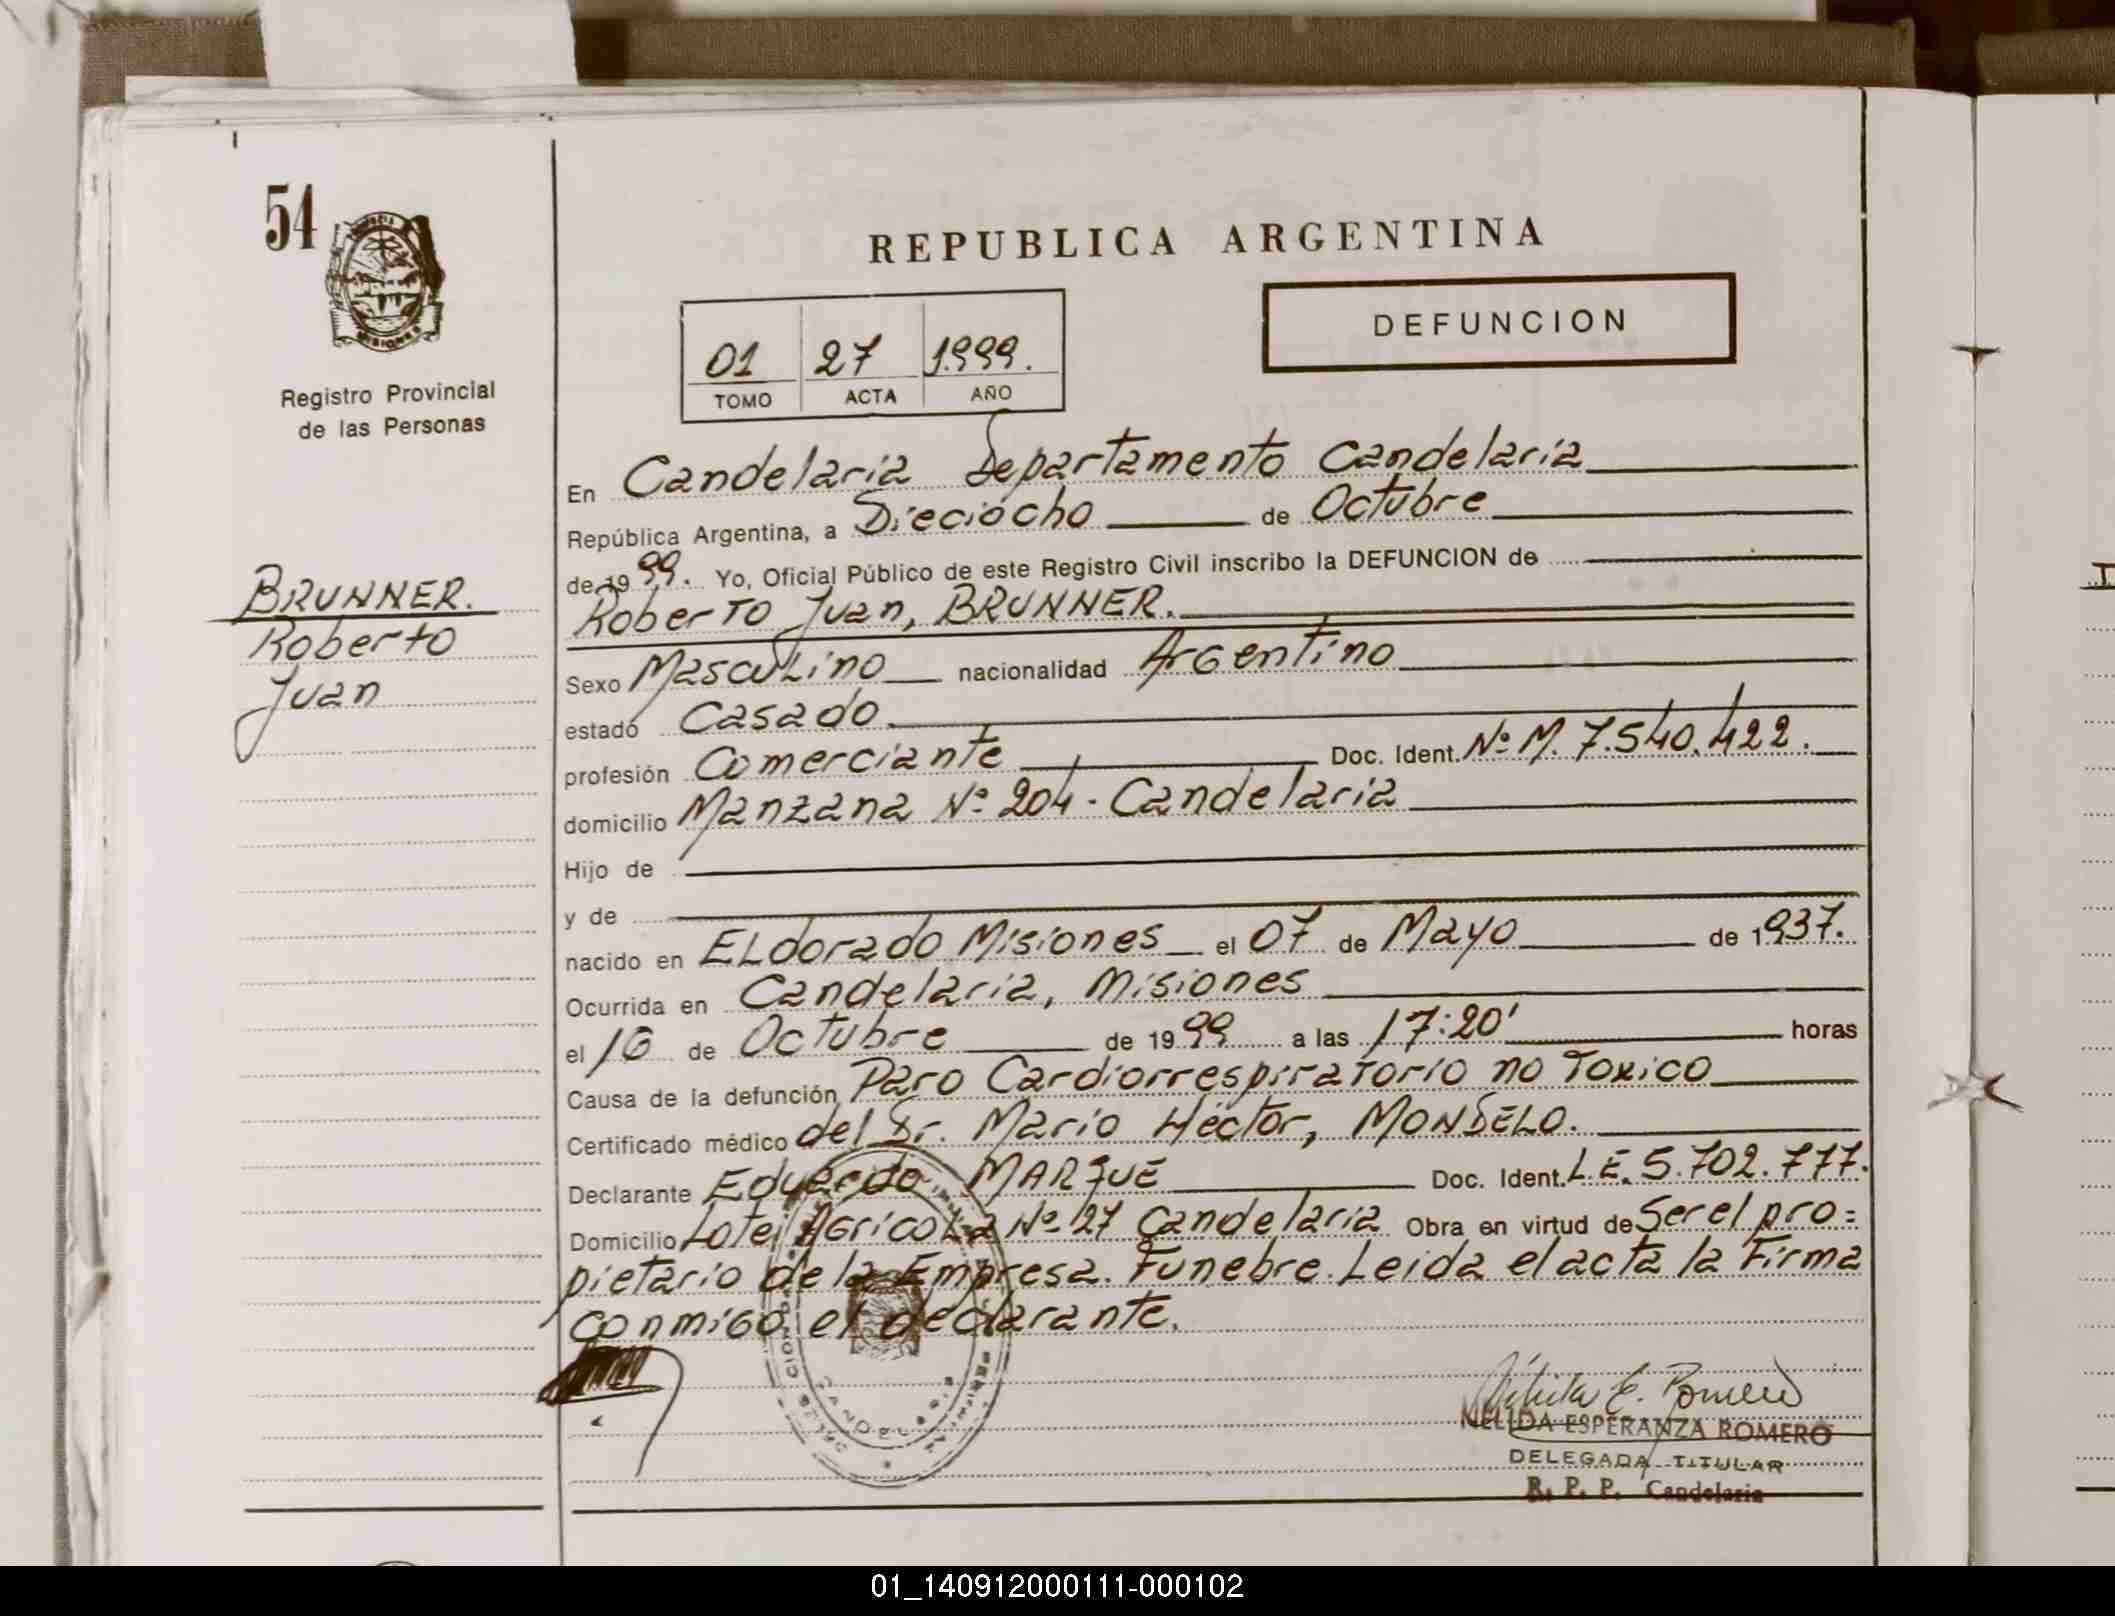 54
Registro Provincial
de las Personas
BRUNNER.
Roberto
Juan
REPUBLICA ARGENTINA
DEFUNCION
01 27 1.999.
TOMO ACTA AÑO
En Candelaria Departamento Candelaria
República Argentina, a Dieciocho de Octubre
de 19 99. Yo, Oficial Público de este Registro Civil inscribo la DEFUNCION de
Roberto Juan, BRUNNER.
Sexo Masculino nacionalidad Argentino
estado Casado.
profesión Comerciante Doc. Ident. Nº M. 7.540.422.
domicilio Manzana Nº 204. Candelaria
Hijo de
y de
nacido en Eldorado Misiones el 07 de Mayo de 1937.
Ocurrida en Candelaria, Misiones
el 16 de Octubre de 19 99 a las 17:20' horas
Causa de la defunción Paro Cardiorrespiratorio no Toxico
Certificado médico del Dr. Mario Héctor, MONDELO.
Declarante Eduardo MARQUE Doc. Ident. L.E. 5.702.777.
Domicilio Lote Agricola Nº 27 Candelaria Obra en virtud de Ser el pro=
pietario de la Empresa. Funebre. Leida el acta la Firma
conmigo el declarante.
CANDELARIA
NELIDA ESPERANZA ROMERO
DELEGADA TITULAR
R. P. P. Candelaria
01_140912000111-000102